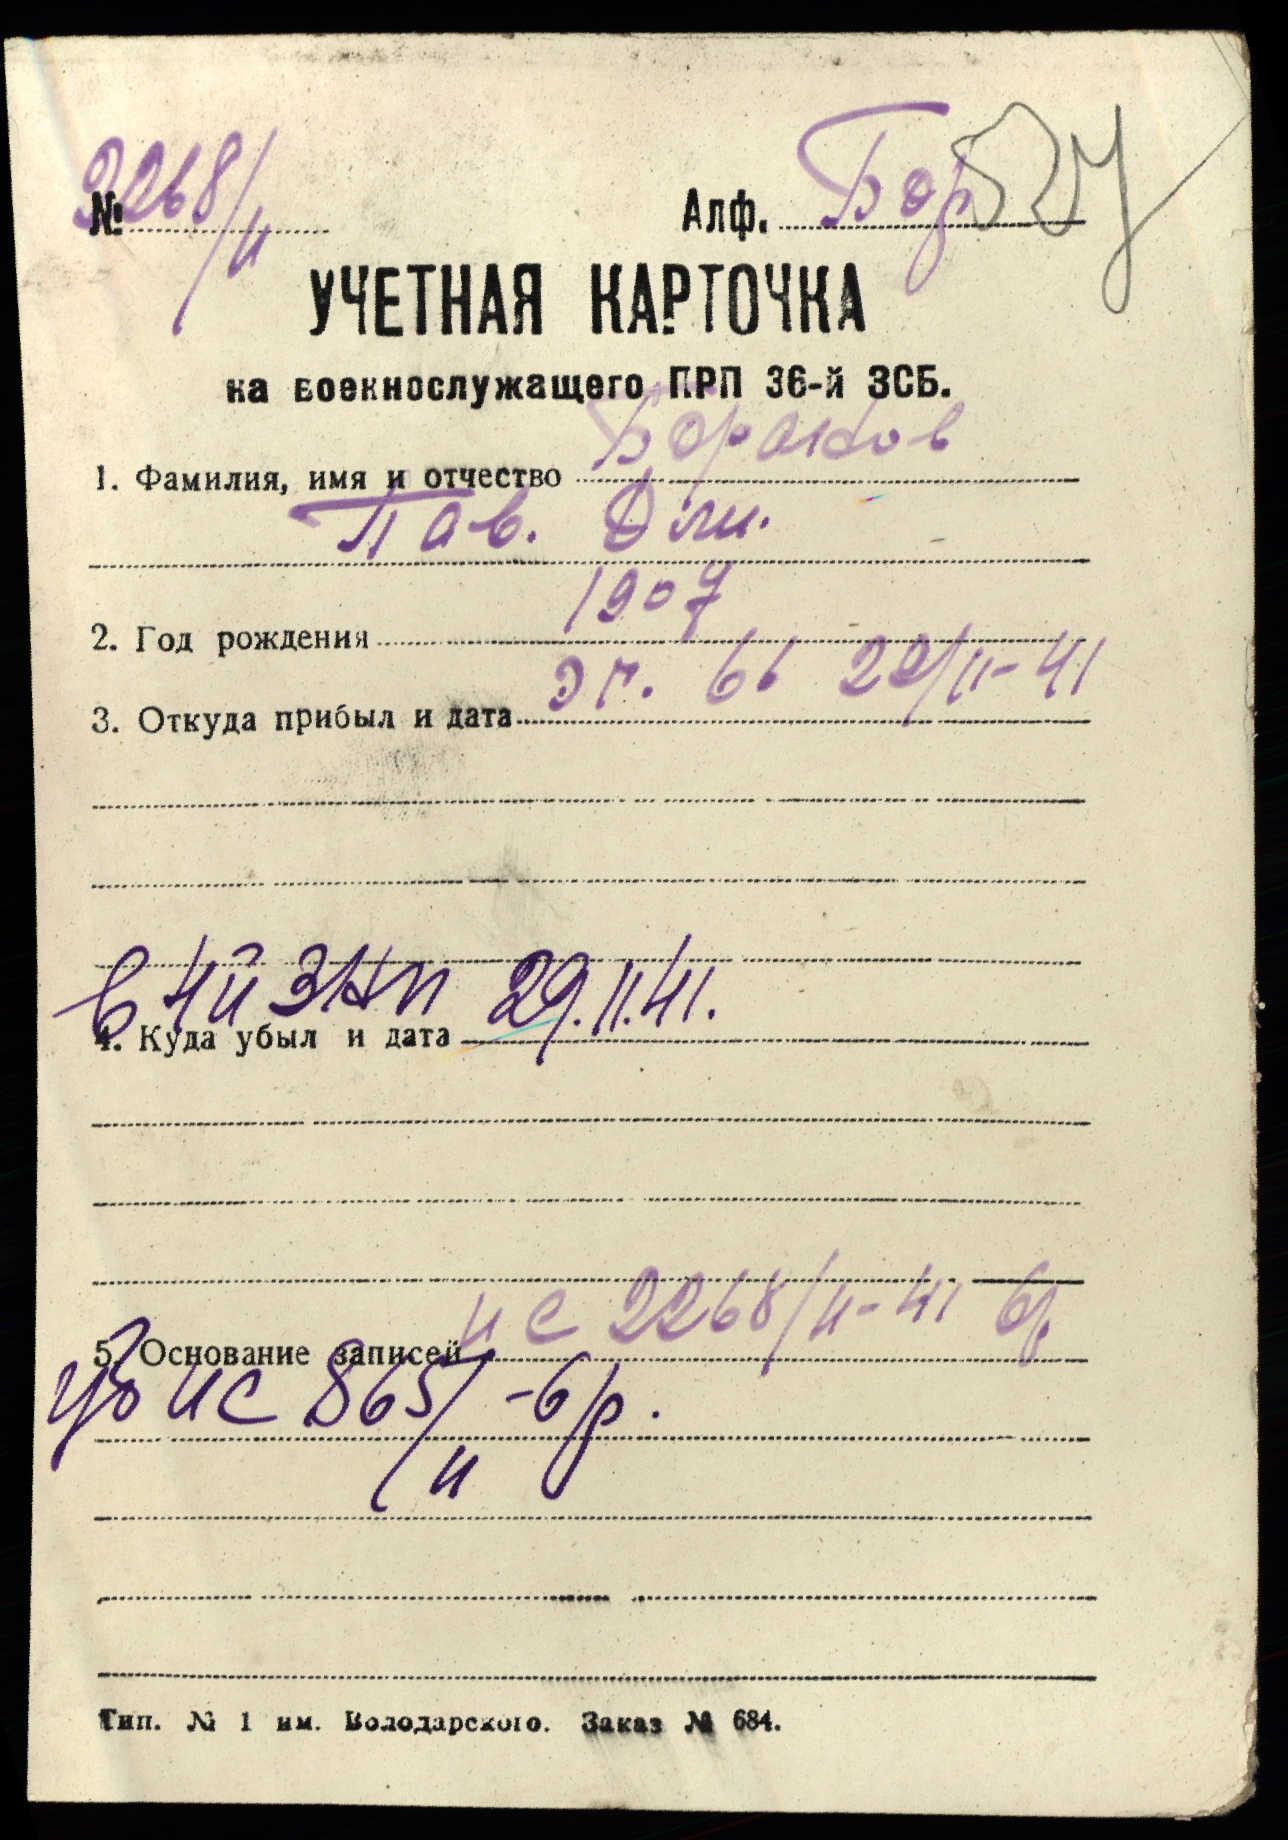 № 2268/11 Алф. Бор
УЧЕТНАЯ КАРТОЧКА
на военнослужащего ПРП 36-й ЗСБ.
1. Фамилия, имя и отчество Бораков
Пав. Дми.
2. Год рождения 1907
3. Откуда прибыл и дата эт. 66 22/11-41
4. Куда убыл и дата
в 4й ЗАП 29.11.41.
5. Основание записей ис 2268/11-41 бр
ис 865/11 -бр.
Тип. № 1 им. Володарского. Заказ № 684.